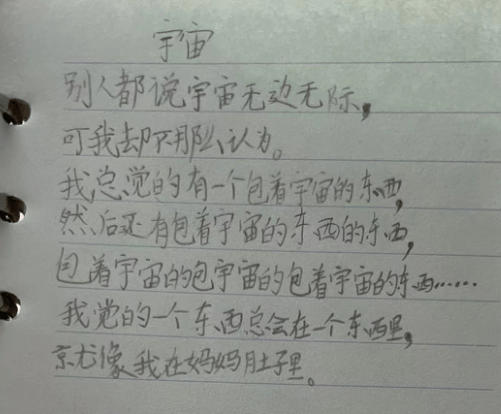 宇宙
别人都说宇宙无边无际，
可我却不那么认为。
我总觉的有一个包着宇宙的东西，
然后还有包着宇宙的东西的东西，
包着宇宙的包宇宙的包着宇宙的东西……
我觉的一个东西总会在一个东西里，
就像我在妈妈肚子里。